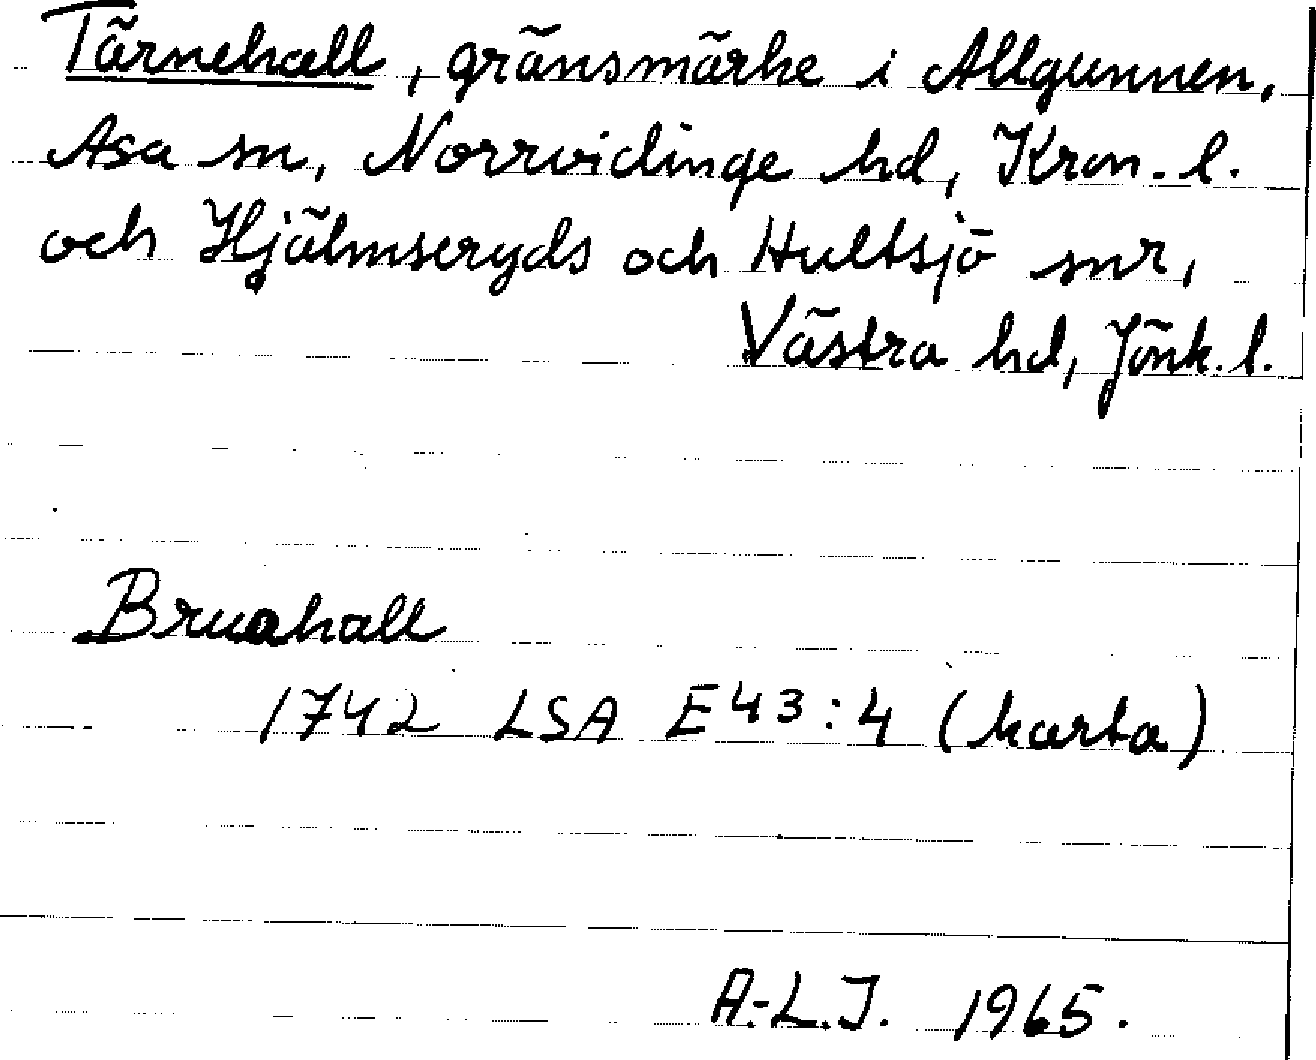 Tärnehall, gränsmärke i Allgunnen,
Asa sn, Norrvidinge hd, Kron. l.
och Hjälmseryds och Hultsjö snr,
Västra hd, Jönk. l.
Bruahall
1742 LSA E43:4 (karta)
A.-L.J. 1965.